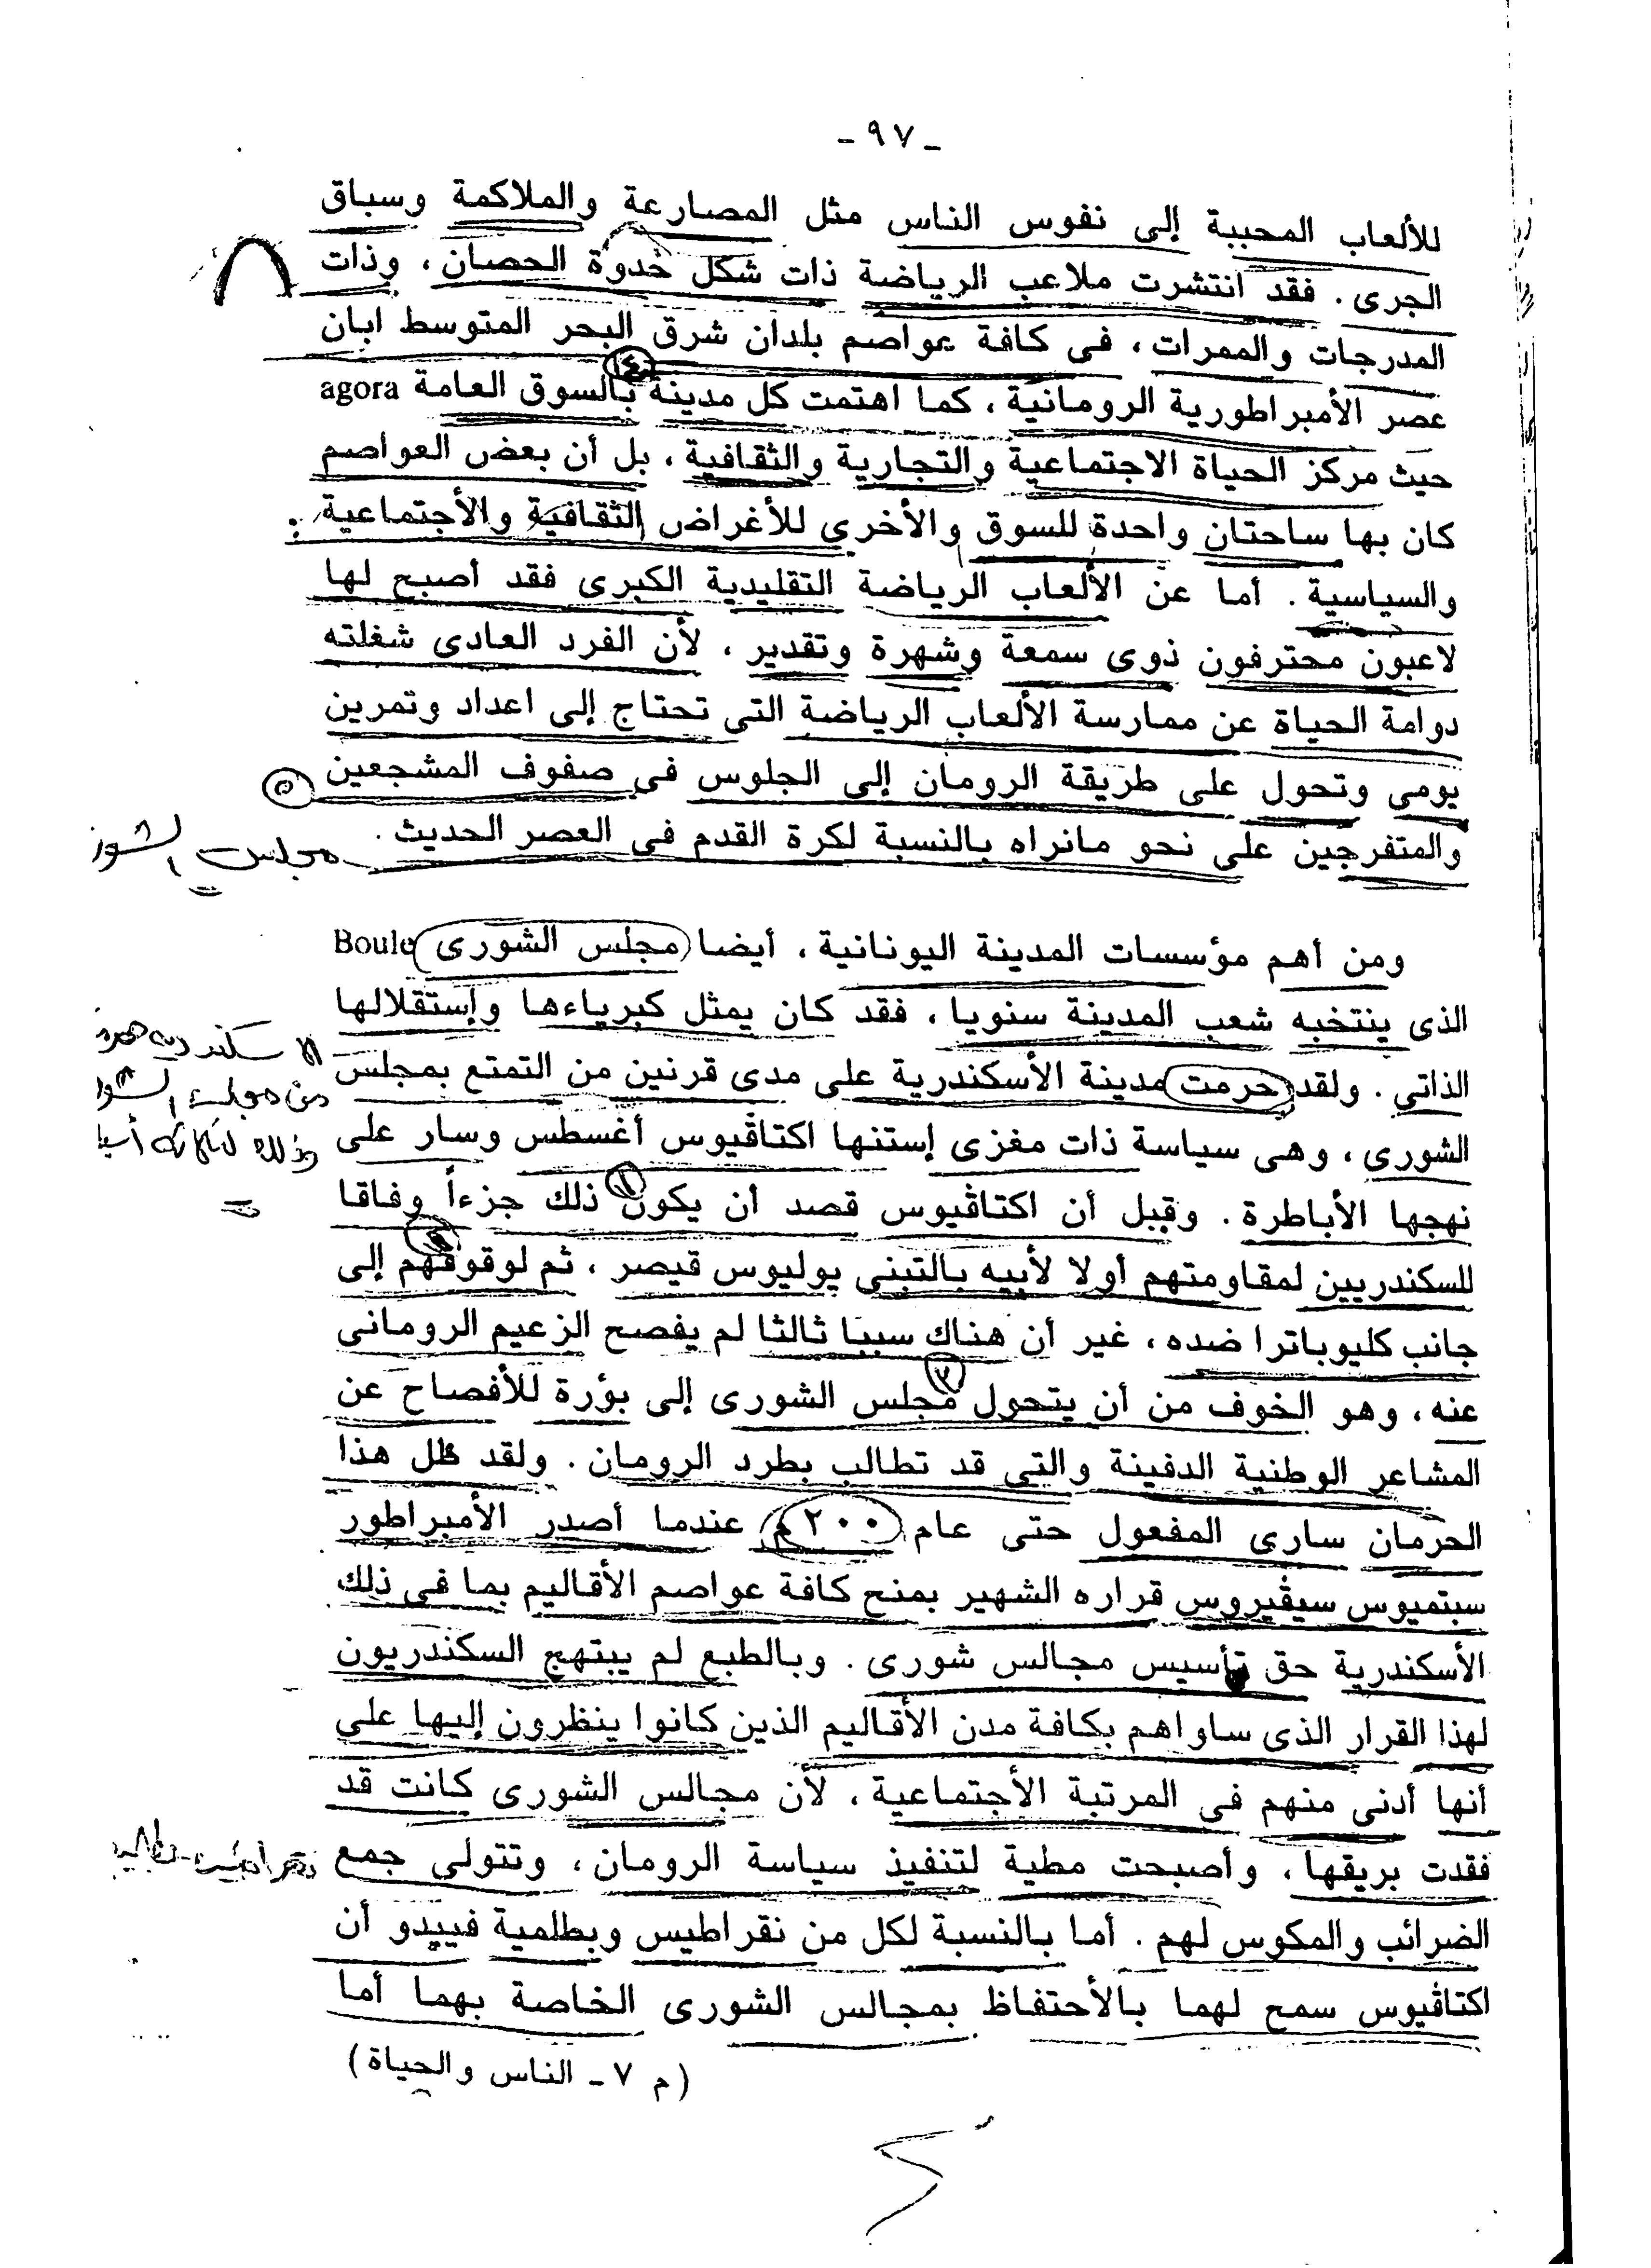 - ٩٧ -
للألعاب المحببة إلى نفوس الناس مثل المصارعة والملاكمة وسباق
الجرى . فقد انتشرت ملاعب الرياضة ذات شكل حدوة الحصان ، وذات
المدرجات والممرات ، فى كافة عواصم بلدان شرق البحر المتوسط ابان
عصر الأمبراطورية الرومانية ، كما اهتمت كل مدينة بالسوق العامة agora
حيث مركز الحياة الاجتماعية والتجارية والثقافية ، بل أن بعض العواصم
كان بها ساحتان واحدة للسوق والأخرى للأغراض الثقافية والأجتماعية
والسياسية . أما عن الألعاب الرياضة التقليدية الكبرى فقد أصبح لها
لاعبون محترفون ذوى سمعة وشهرة وتقدير ، لأن الفرد العادى شغلته
دوامة الحياة عن ممارسة الألعاب الرياضة التى تحتاج إلى اعداد وتمرين
يومى وتحول على طريقة الرومان إلى الجلوس فى صفوف المشجعين ٥
والمتفرجين على نحو مانراه بالنسبة لكرة القدم فى العصر الحديث .
مجلس الشورى
ومن أهم مؤسسات المدينة اليونانية ، أيضا مجلس الشورى Boule
الذى ينتخبه شعب المدينة سنويا ، فقد كان يمثل كبرياءها وإستقلالها
الذاتي . ولقد حرمت مدينة الأسكندرية على مدى قرنين من التمتع بمجلس
الشورى ، وهى سياسة ذات مغزى إستنها اكتاڤيوس أغسطس وسار على
نهجها الأباطرة . وقيل أن اكتاڤيوس قصد أن يكون ذلك جزءاً وفاقا
للسكندريين لمقاومتهم أولا لأبيه بالتبنى يوليوس قيصر ، ثم لوقوفهم إلى
جانب كليوباترا ضده ، غير أن هناك سببا ثالثا لم يفصح الزعيم الرومانى
عنه ، وهو الخوف من أن يتحول مجلس الشورى إلى بؤرة للأفصاح عن
المشاعر الوطنية الدفينة والتى قد تطالب بطرد الرومان . ولقد ظل هذا
الحرمان سارى المفعول حتى عام ٢٠٠ م عندما أصدر الأمبراطور
سبتميوس سيڤيروس قراره الشهير بمنح كافة عواصم الأقاليم بما فى ذلك
الأسكندرية حق تأسيس مجالس شورى . وبالطبع لم يبتهج السكندريون
لهذا القرار الذى ساواهم بكافة مدن الأقاليم الذين كانوا ينظرون إليها على
أنها أدنى منهم فى المرتبة الأجتماعية ، لأن مجالس الشورى كانت قد
فقدت بريقها ، وأصبحت مطية لتنفيذ سياسة الرومان ، وتتولى جمع
الضرائب والمكوس لهم . أما بالنسبة لكل من نقراطيس وبطلمية فيبدو أن
اكتاڤيوس سمح لهما بالأحتفاظ بمجالس الشورى الخاصة بهما أما
(م ٧ - الناس والحياة)